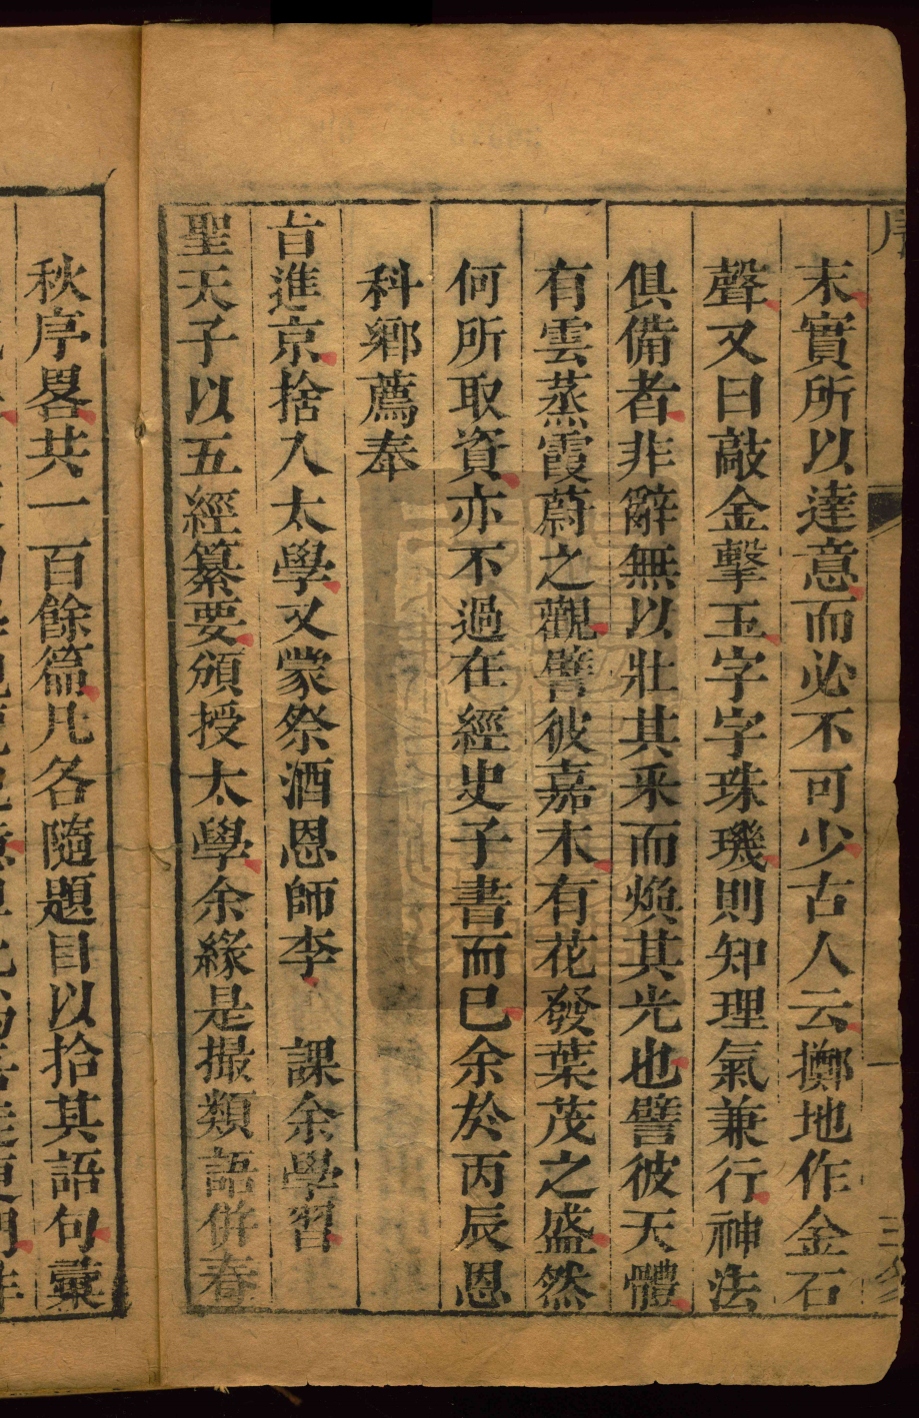 序
三
末實所以達意而必不可少古人云擲地作金石
聲又曰敲金擊玉字字珠璣則知理氣兼行神法
俱備者非辭無以壯其釆而煥其光也譬彼天體
有雲蒸霞蔚之觀譬彼嘉木有花發葉茂之盛然
何所取資亦不過在經史子書而已余於丙辰恩
科鄉薦奉
旨進京捨入太學又蒙祭酒恩師李 課余學習
聖天子以五經纂要頒授太學余緣是撮類語併春
秋序畧共一百餘篇凡各隨題目以拾其語句彙